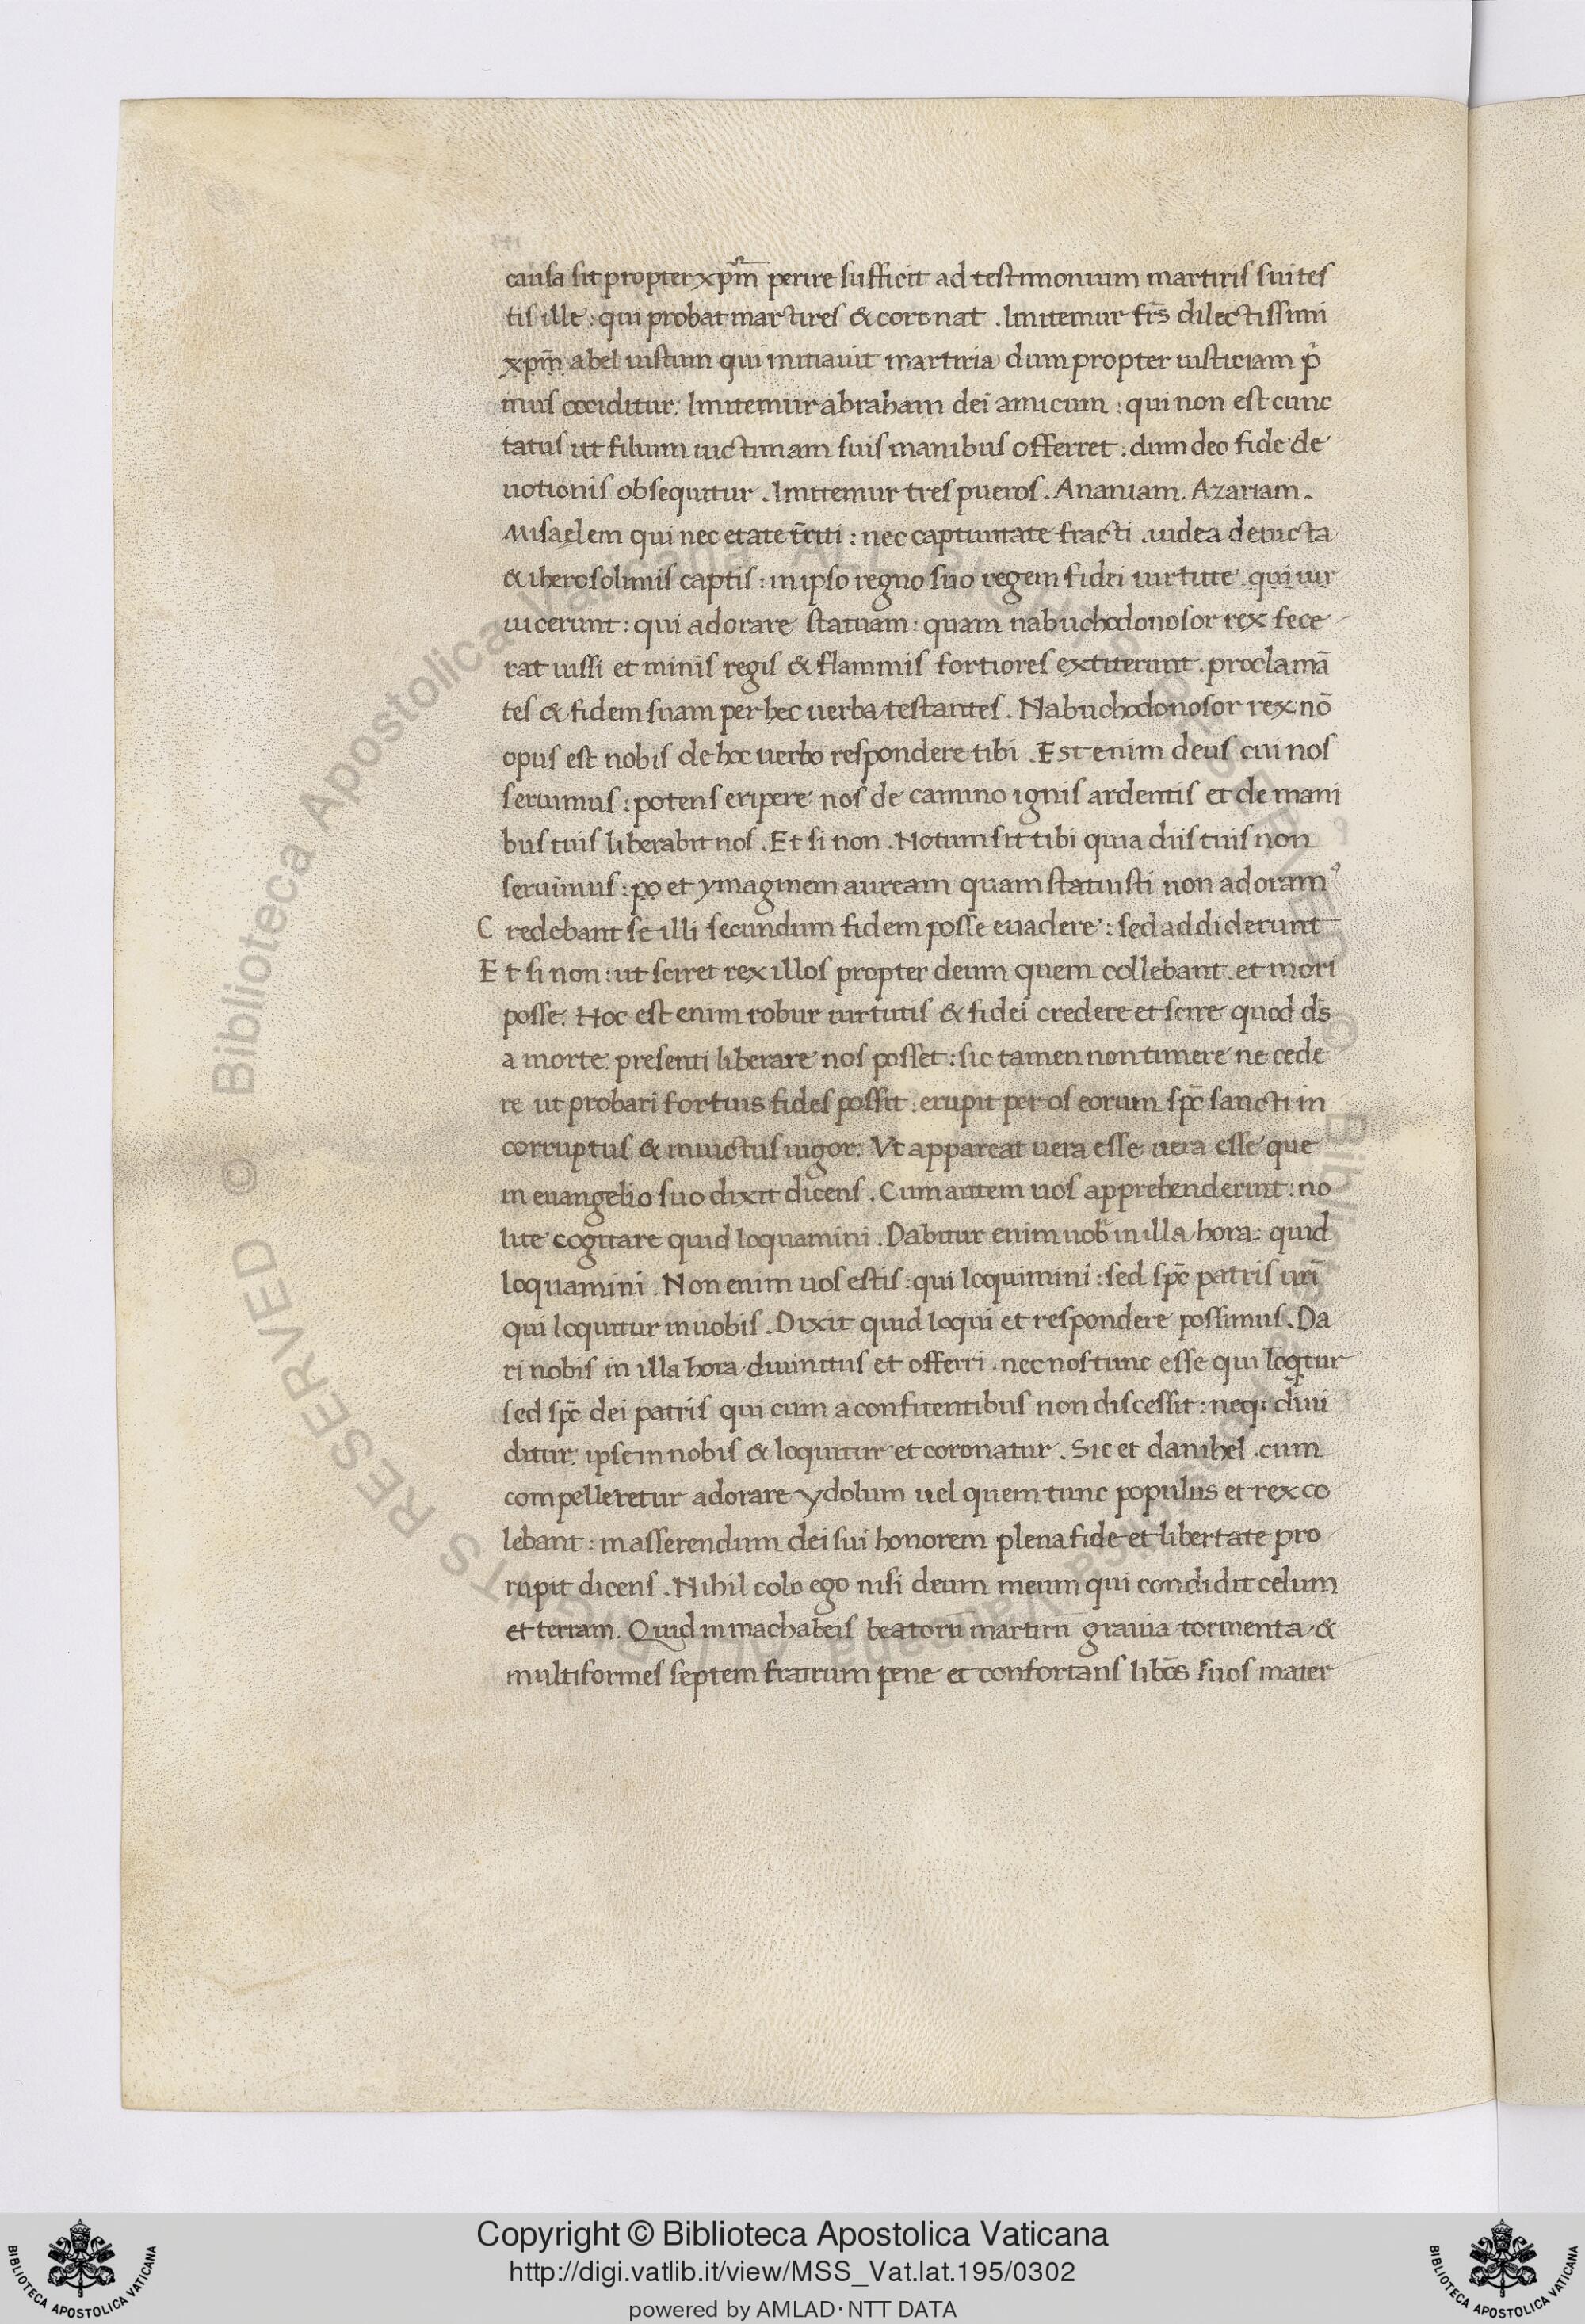 causa sit propter xpm̄ perire sufficit ad testimonium martiris sui tes
tis ille : qui probat martires & coronat . Imitemur frs̄ dilectissimi
xpm̄ abel iustum qui initiauit martiria dum propter iusticiam p̓
mus occiditur. Imitemur abraham dei amicum : qui non est cunc
tatus ut filium uictimam suis manibus offerret . dum deo fide de
uotionis obsequitur . Imitemur tres pueros . Ananiam . Azariam .
Misaelem qui nec etate tr̄riti : nec captiuitate fracti . iudea deuicta
& iherosolimis captis : in ipso regno suo regem fidei uirtute qui uir
uicerunt : qui adorare statuam : quam nabuchodonosor rex fece
rat iussi et minis regis & flammis fortiores extiterunt . proclamā
tes & fidem suam per hec uerba testantes . Nabuchodonosor rex nō
opus est nobis de hoc uerbo respondere tibi . Est enim deus cui nos
seruimus : potens eripere nos de camino ignis ardentis et de mani
bus tuis liberabit nos . Et si non . Notum sit tibi quia diis tuis non
seruimus : po et ymaginem auream quam statuisti non adoramꝰ
Credebant se illi secundum fidem posse euadere : sed addiderunt
Et si non : ut sciret rex illos propter deum quem collebant . et mori
posse. Hoc est enim robur uirtutis & fidei credere et scire quod ds̄
a morte presenti liberare nos posset : sic tamen non timere ne cede
re ut probari fortius fides possit . erupit per os eorum spc̄ sancti in
corruptus & inuictus uigor. Vt appareat uera esse uera esse que
in euangelio suo dixit dicens . Cum autem uos apprehenderint : no
lite cogitare quid loquamini . Dabitur enim uob̄ in illa hora : quid
loquamini . Non enim uos estis : qui loquimini : sed spc̄ patris uri̅
qui loquitur in uobis . Dixit quid loqui et respondere possimus . Da
ri nobis in illa hora diuinitus et offerri . nec nos tunc esse qui loqꝛtur
sed spc̄ dei patris qui cum a confitentibus non discessit : neq; diui
ditur. ipse in nobis & loquitur et coronatur . Sic et danihel . cum
compelleretur adorare ydolum uel quem tunc populus et rex co
lebant : in asserendum dei sui honorem plena fide et libertate pro
rupit dicens . Nihil colo ego nisi deum meum qui condidit celum
et terram . Quid in machabeis beatorū martirū grauia tormenta &
multiformes septem fratrum pene et confortans libōs suos mater
Copyright © Biblioteca Apostolica Vaticana
http://digi.vatlib.it/view/MSS_Vat.lat.195/0302
powered by AMLAD·NTT DATA
BIBLIOTECA APOSTOLICA VATICANA
BIBLIOTECA APOSTOLICA VATICANA